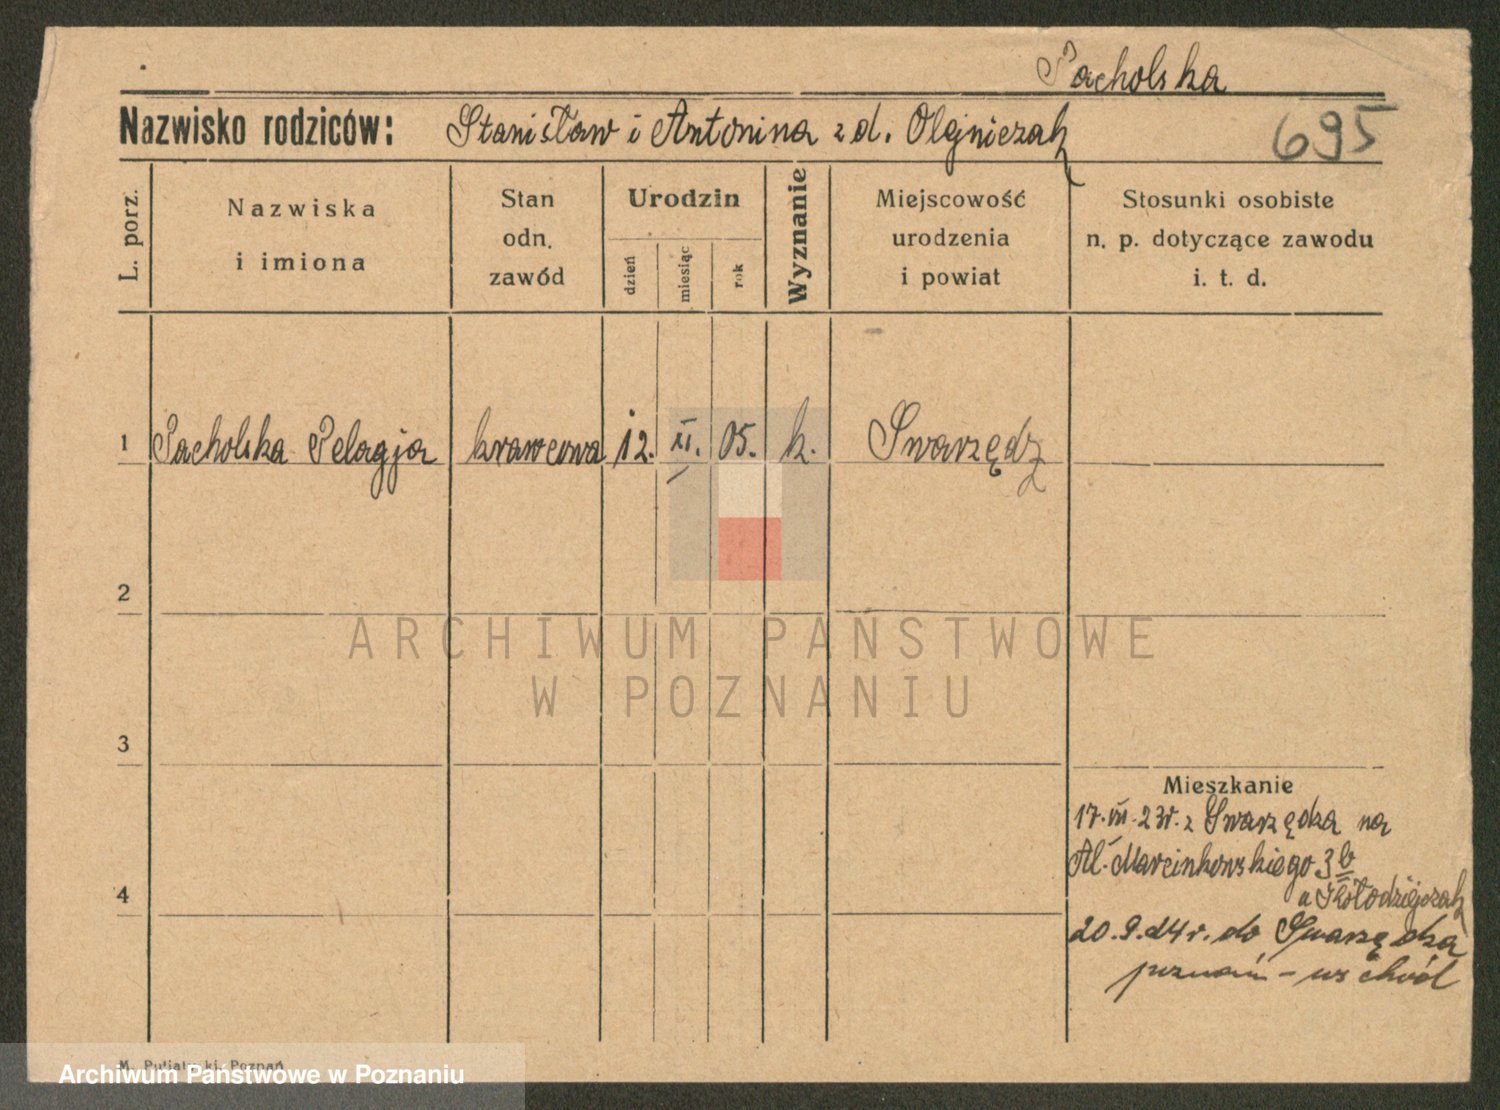 Pacholska
Nazwisko rodziców: Stanisław i Antonina z d. Olejniczak
695
L. porz.
Nazwiska
i imiona
Stan
odn.
zawód
Urodzin
dzień
miesiąc
rok
Wyznanie
Miejscowość
urodzenia
i powiat
Stosunki osobiste
n. p. dotyczące zawodu
i. t. d.
1 Pacholska Pelagja krawcowa 12. XI. 05. k. Swarzędz
2
3
4
Mieszkanie
17. VII. 23r. z Swarzędza na
Al. Marcinkowskiego 3b
u Kołodziejczak
20.9.24r. do Swarzędza
poznań - wschód
ARCHIWUM PAŃSTWOWE
W POZNANIU
Poznań
Archiwum Państwowe w Poznaniu